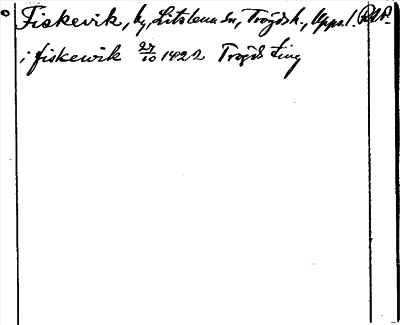 Fiskevik, by, Litslena sn, Trögds h., Upps. l.
i fiskewik 27/10 1422 Trögds ting